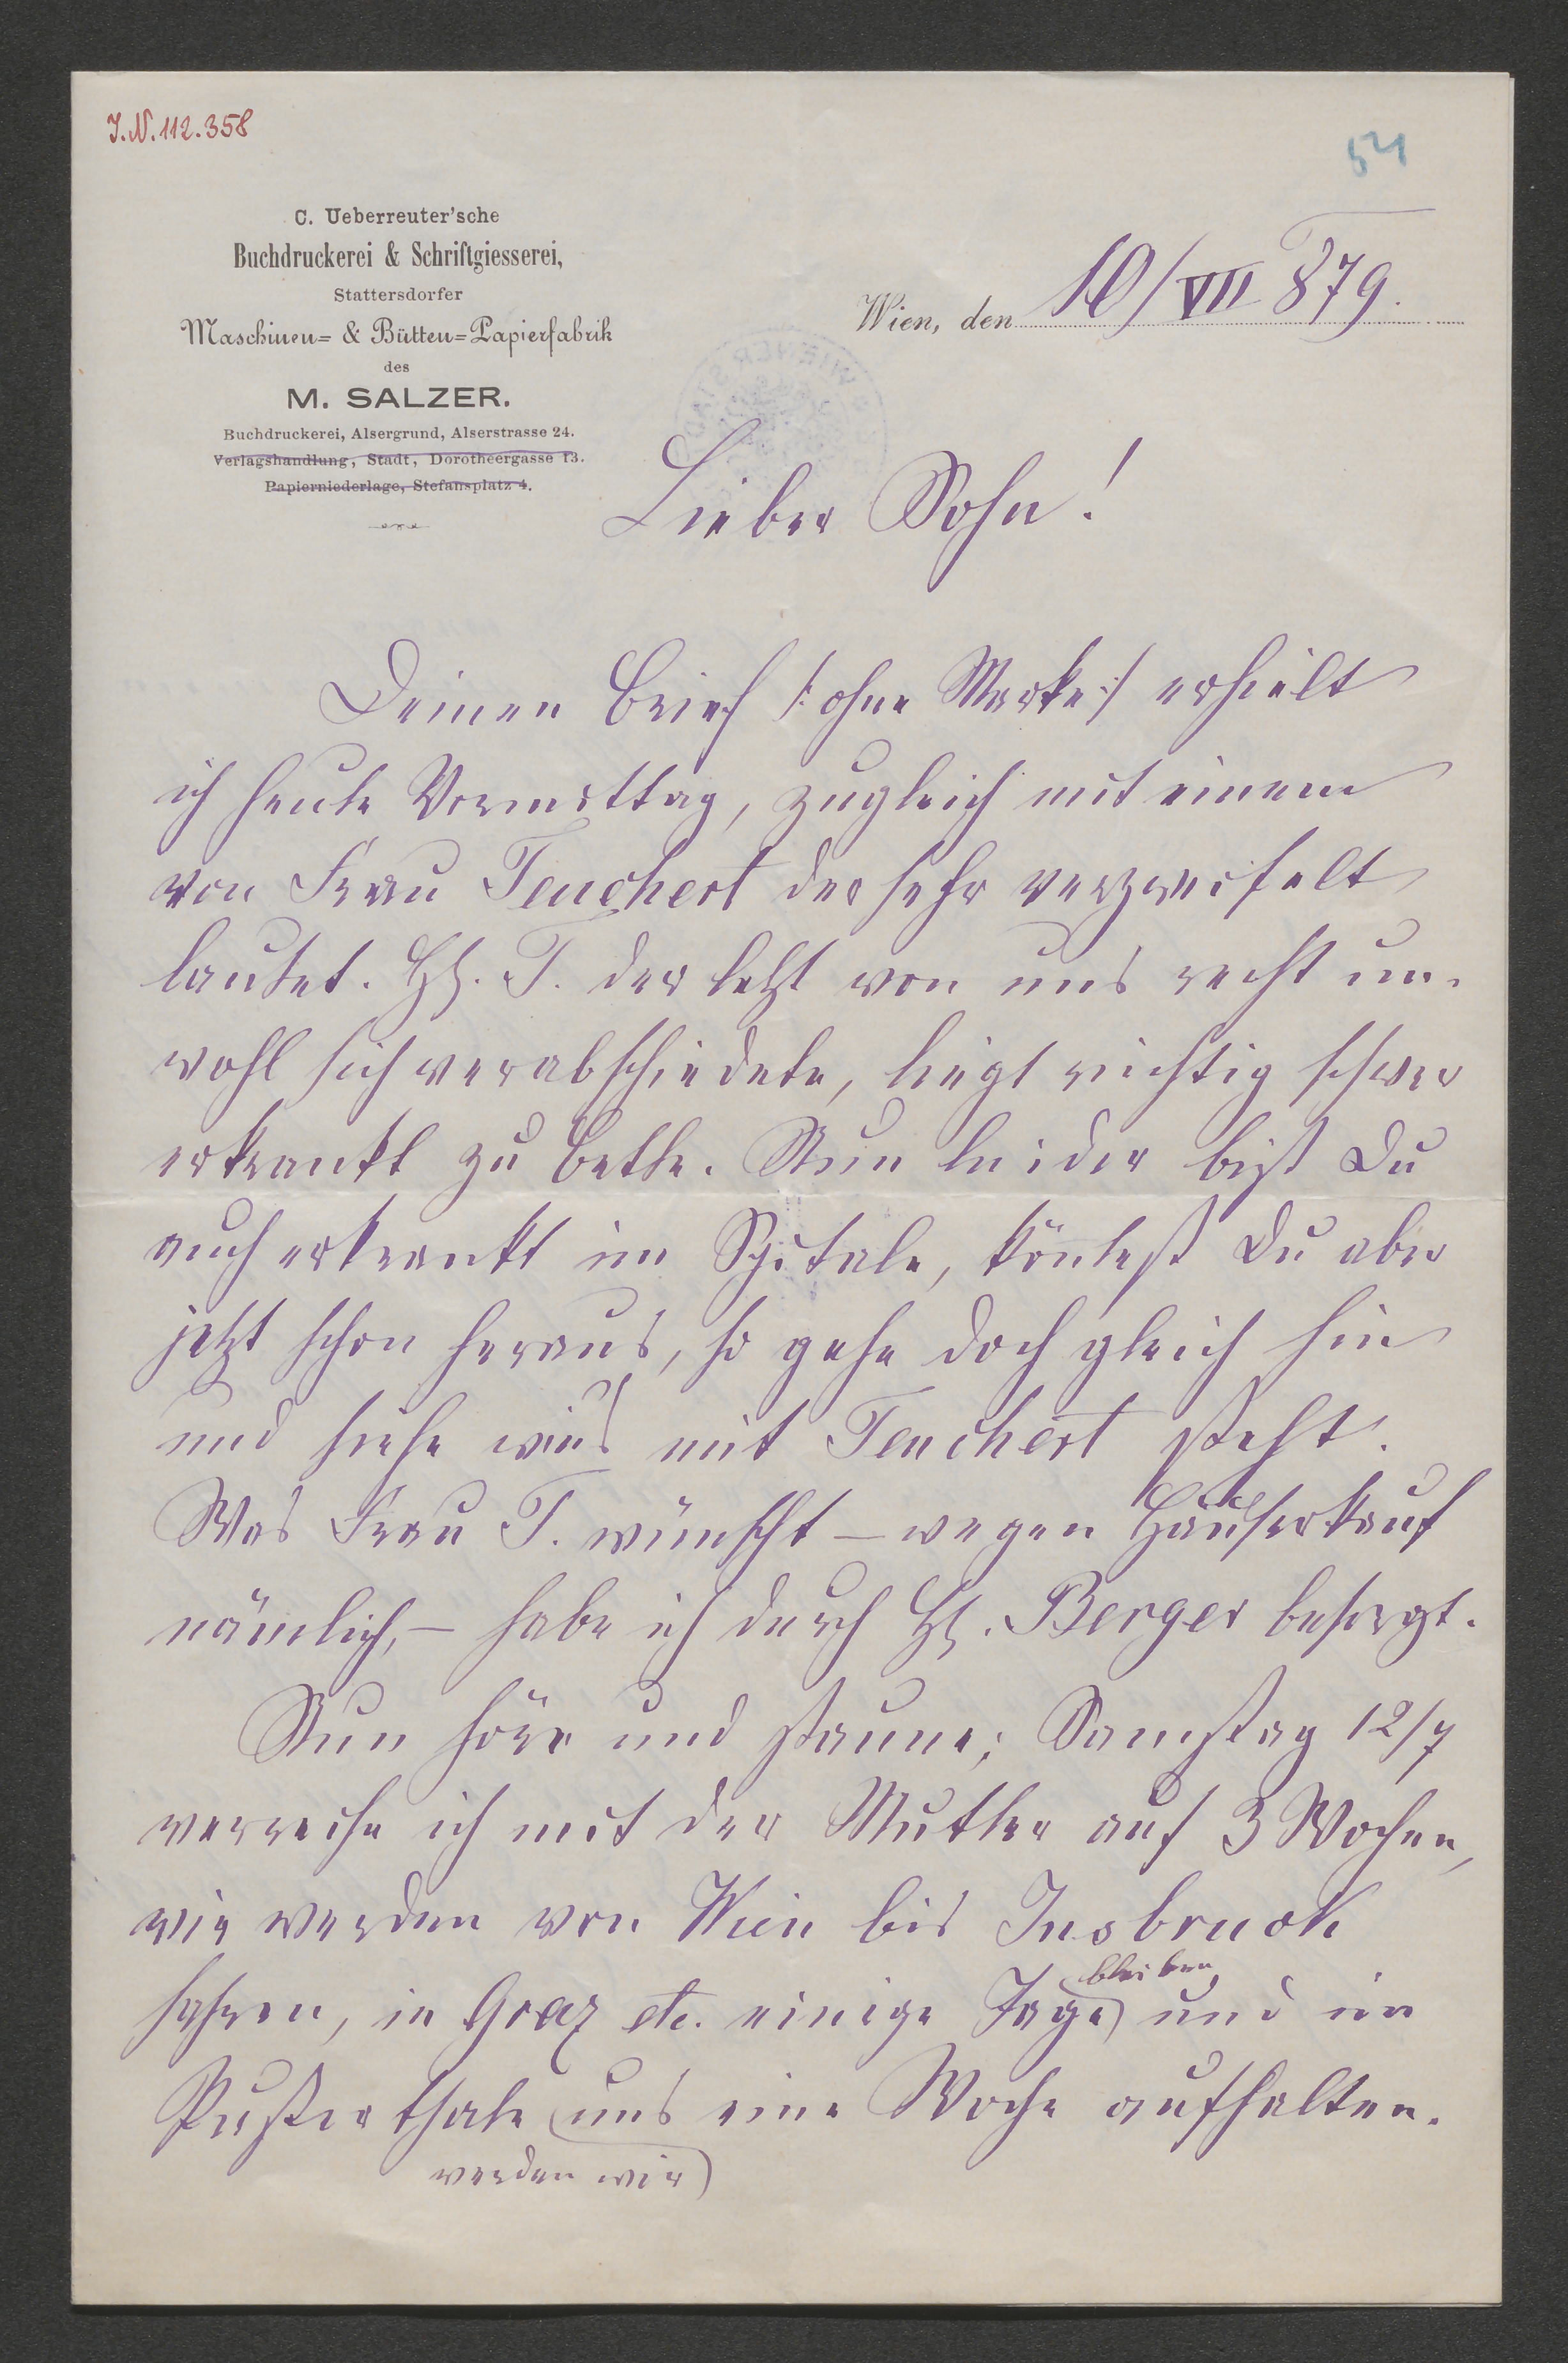 J.N. 112.358
54
C. Ueberreuter'sche
Buchdruckerei & Schriftgiesserei,
Stattersdorfer
Maschinen= & Bütten=Papierfabrik
des
M. SALZER.
Buchdruckerei, Alsergrund, Alserstrasse 24.
Verlagshandlung, Stadt, Dorotheergasse 13.
Papierniederlage, Stefansplatz 4.
Wien, den 10/VII 879.
Lieber Sohn!
Deinen Brief /: ohne Marke :/ erhielt
ich heute Vormittag, zugleich mit einem
von Frau Teuchert der sehr verzweifelt
lautet. H. T. der letzt von uns recht un-
wohl sich verabschiedete, liegt richtig schwer
erkrankt zu Bette. Nun leider bist Du
auch erkrankt im Spitale, könntest Du aber
jetzt schon heraus, so gehe doch gleich hin
und siehe wie's mit Teuchert steht.
Was Frau T. wünscht – wegen Häuserkauf
nämlich, – habe ich durch H. Berger besorgt.
Nun höre und staune; Samstag 12/7
verreise ich mit der Mutter auf 3 Wochen,
wir werden von Wien bis Insbruck
fahren, in Graz etc. einige Tage bleiben, und im
Pusterthale werden wir uns eine Woche aufhalten.